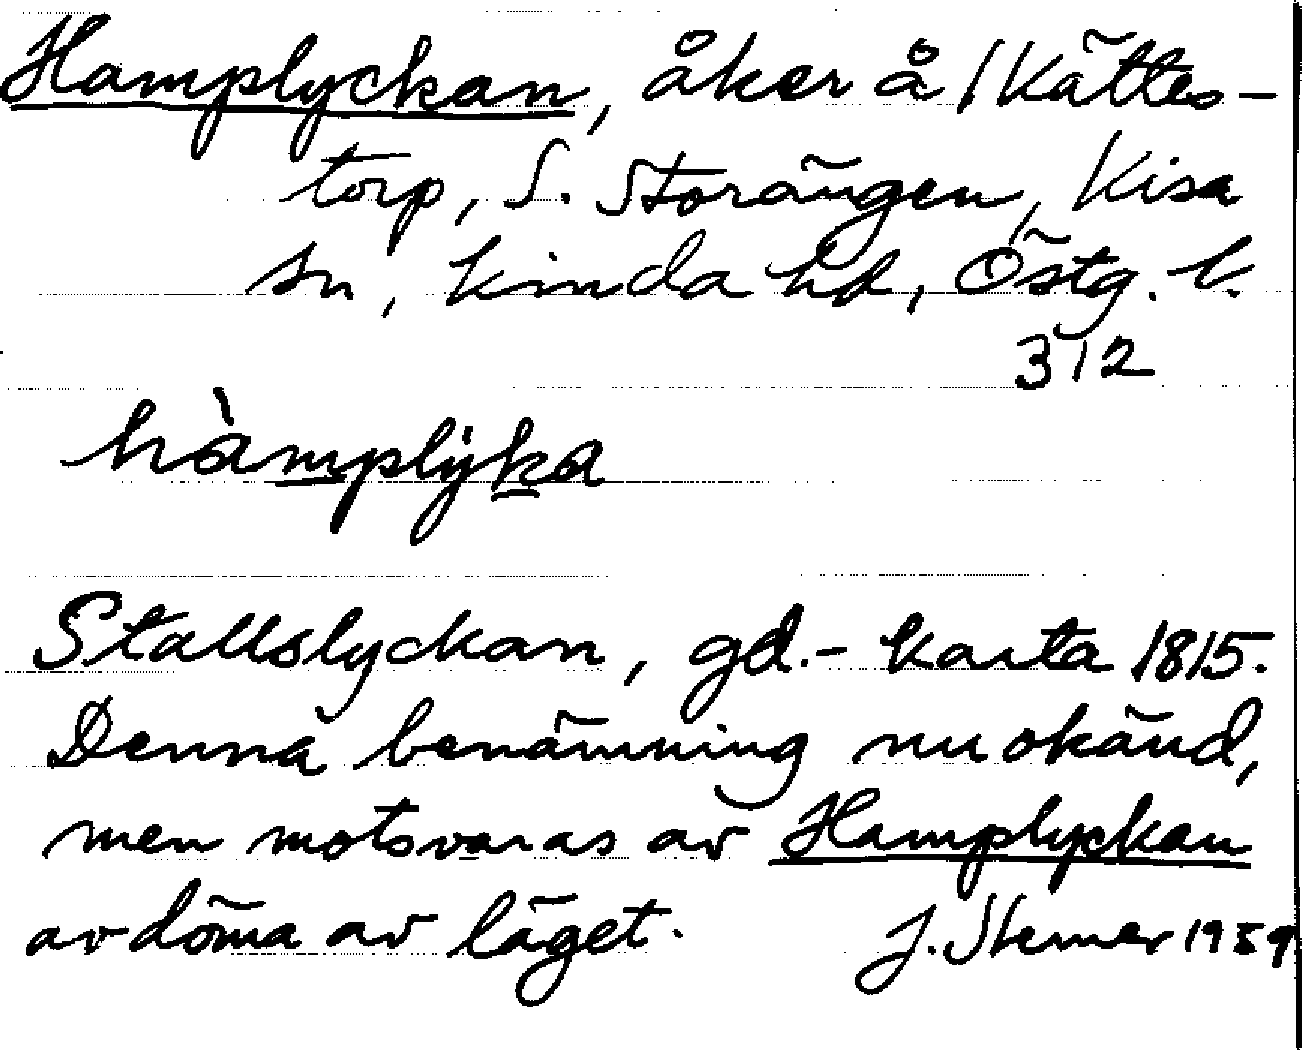 Hamplyckan, åker å 1 Kättes-
torp, S. Storängen, Kisa
sn, Kinda hd, Östg. l.
312
hàmplỳka
Stallslyckan, gd.- karta 1815.
Denna benämning nu okänd,
men motsvaras av Hamplyckan
av döma av läget. J. Sterner 1959